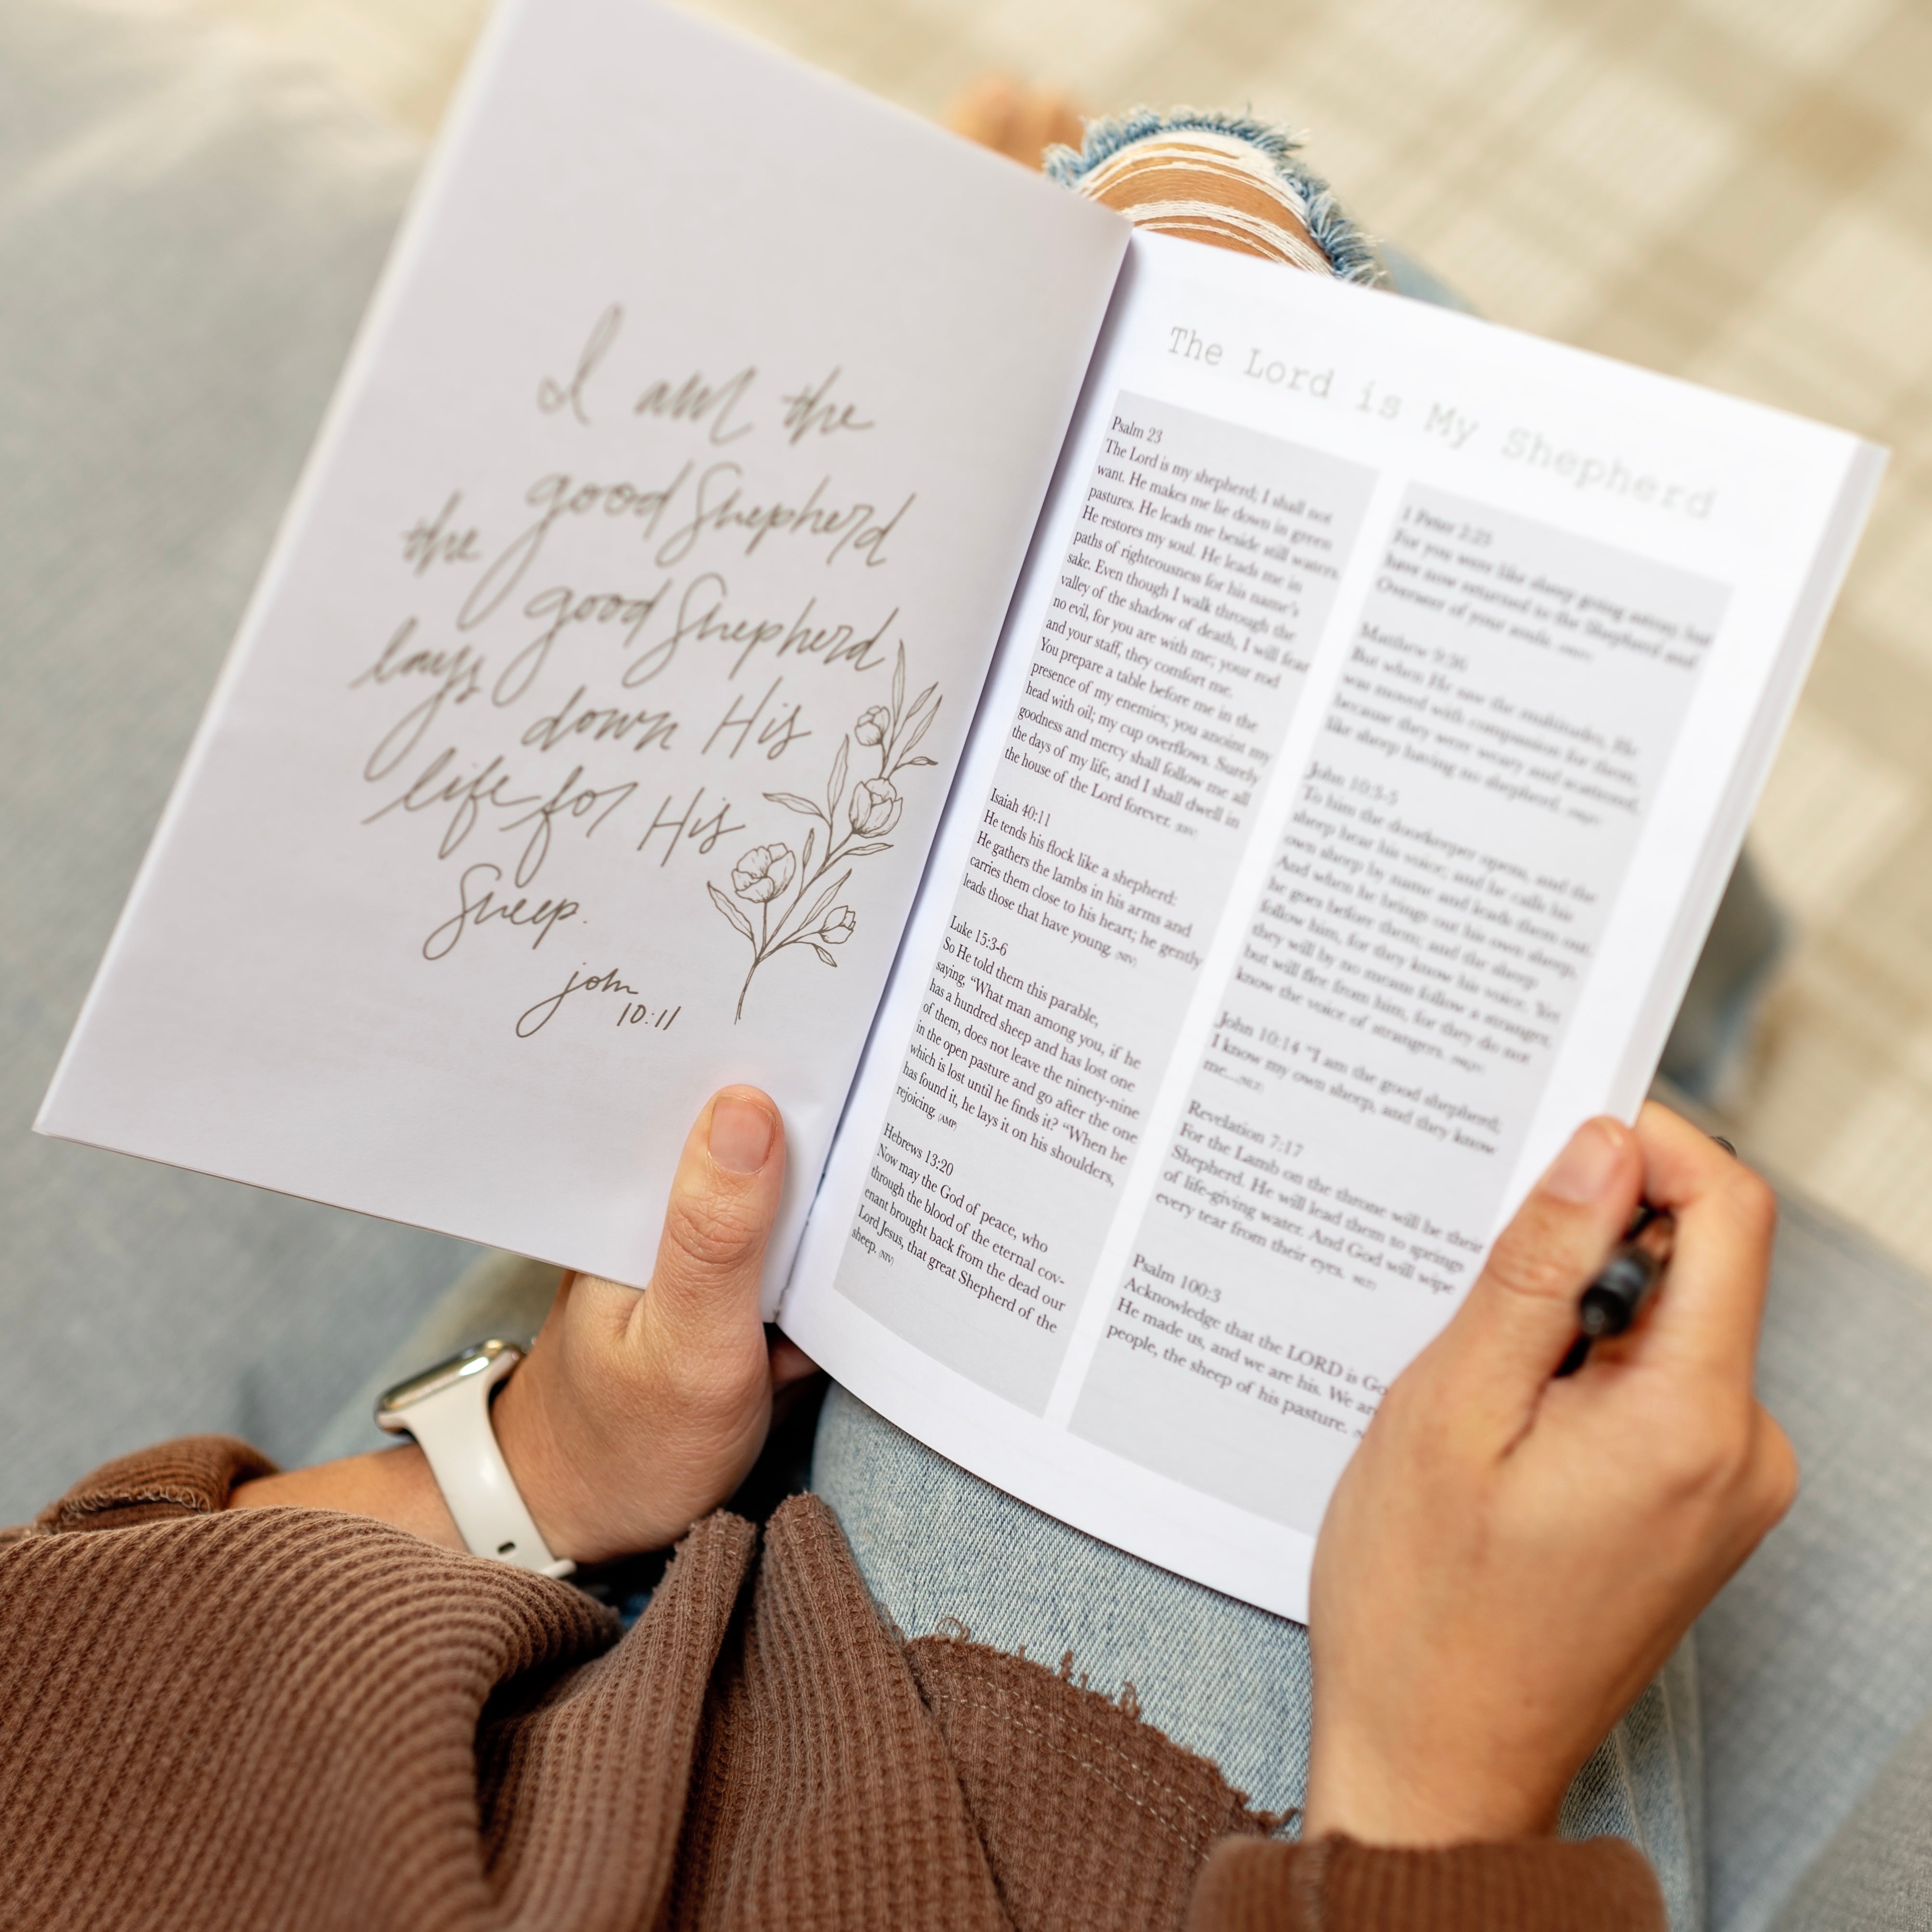 I am the
good Shepherd
the good Shepherd
lays down His
life for His
Sheep.
john
10:11
The Lord is My Shepherd
Psalm 23
The Lord is my shepherd; I shall not
want. He makes me lie down in green
pastures. He leads me beside still waters.
He restores my soul. He leads me in
paths of righteousness for his name's
sake. Even though I walk through the
valley of the shadow of death, I will fear
no evil, for you are with me; your rod
and your staff, they comfort me.
You prepare a table before me in the
presence of my enemies; you anoint my
head with oil; my cup overflows. Surely
goodness and mercy shall follow me all
the days of my life, and I shall dwell in
the house of the Lord forever.
Isaiah 40:11
He tends his flock like a shepherd:
He gathers the lambs in his arms and
carries them close to his heart; he gently
leads those that have young. (NIV)
Luke 15:3-6
So He told them this parable,
saying, "What man among you, if he
has a hundred sheep and has lost one
of them, does not leave the ninety-nine
in the open pasture and go after the one
which is lost until he finds it? "When he
has found it, he lays it on his shoulders,
rejoicing. (AMP)
Hebrews 13:20
Now may the God of peace, who
through the blood of the eternal cov-
enant brought back from the dead our
Lord Jesus, that great Shepherd of the
sheep. (NIV)
1 Peter 2:25
For you were like sheep going astray, but
have now returned to the Shepherd and
Overseer of your souls.
Matthew 9:36
But when He saw the multitudes, He
was moved with compassion for them,
because they were weary and scattered,
like sheep having no shepherd.
John 10:3-5
To him the doorkeeper opens, and the
sheep hear his voice; and he calls his
own sheep by name and leads them out.
And when he brings out his own sheep,
he goes before them; and the sheep
follow him, for they know his voice. Yet
they will by no means follow a stranger,
but will flee from him, for they do not
know the voice of strangers.
John 10:14 "I am the good shepherd;
I know my own sheep, and they know
me...(NLT)
Revelation 7:17
For the Lamb on the throne will be their
Shepherd. He will lead them to springs
of life-giving water. And God will wipe
every tear from their eyes. (NLT)
Psalm 100:3
Acknowledge that the LORD is Go
He made us, and we are his. We are
people, the sheep of his pasture.